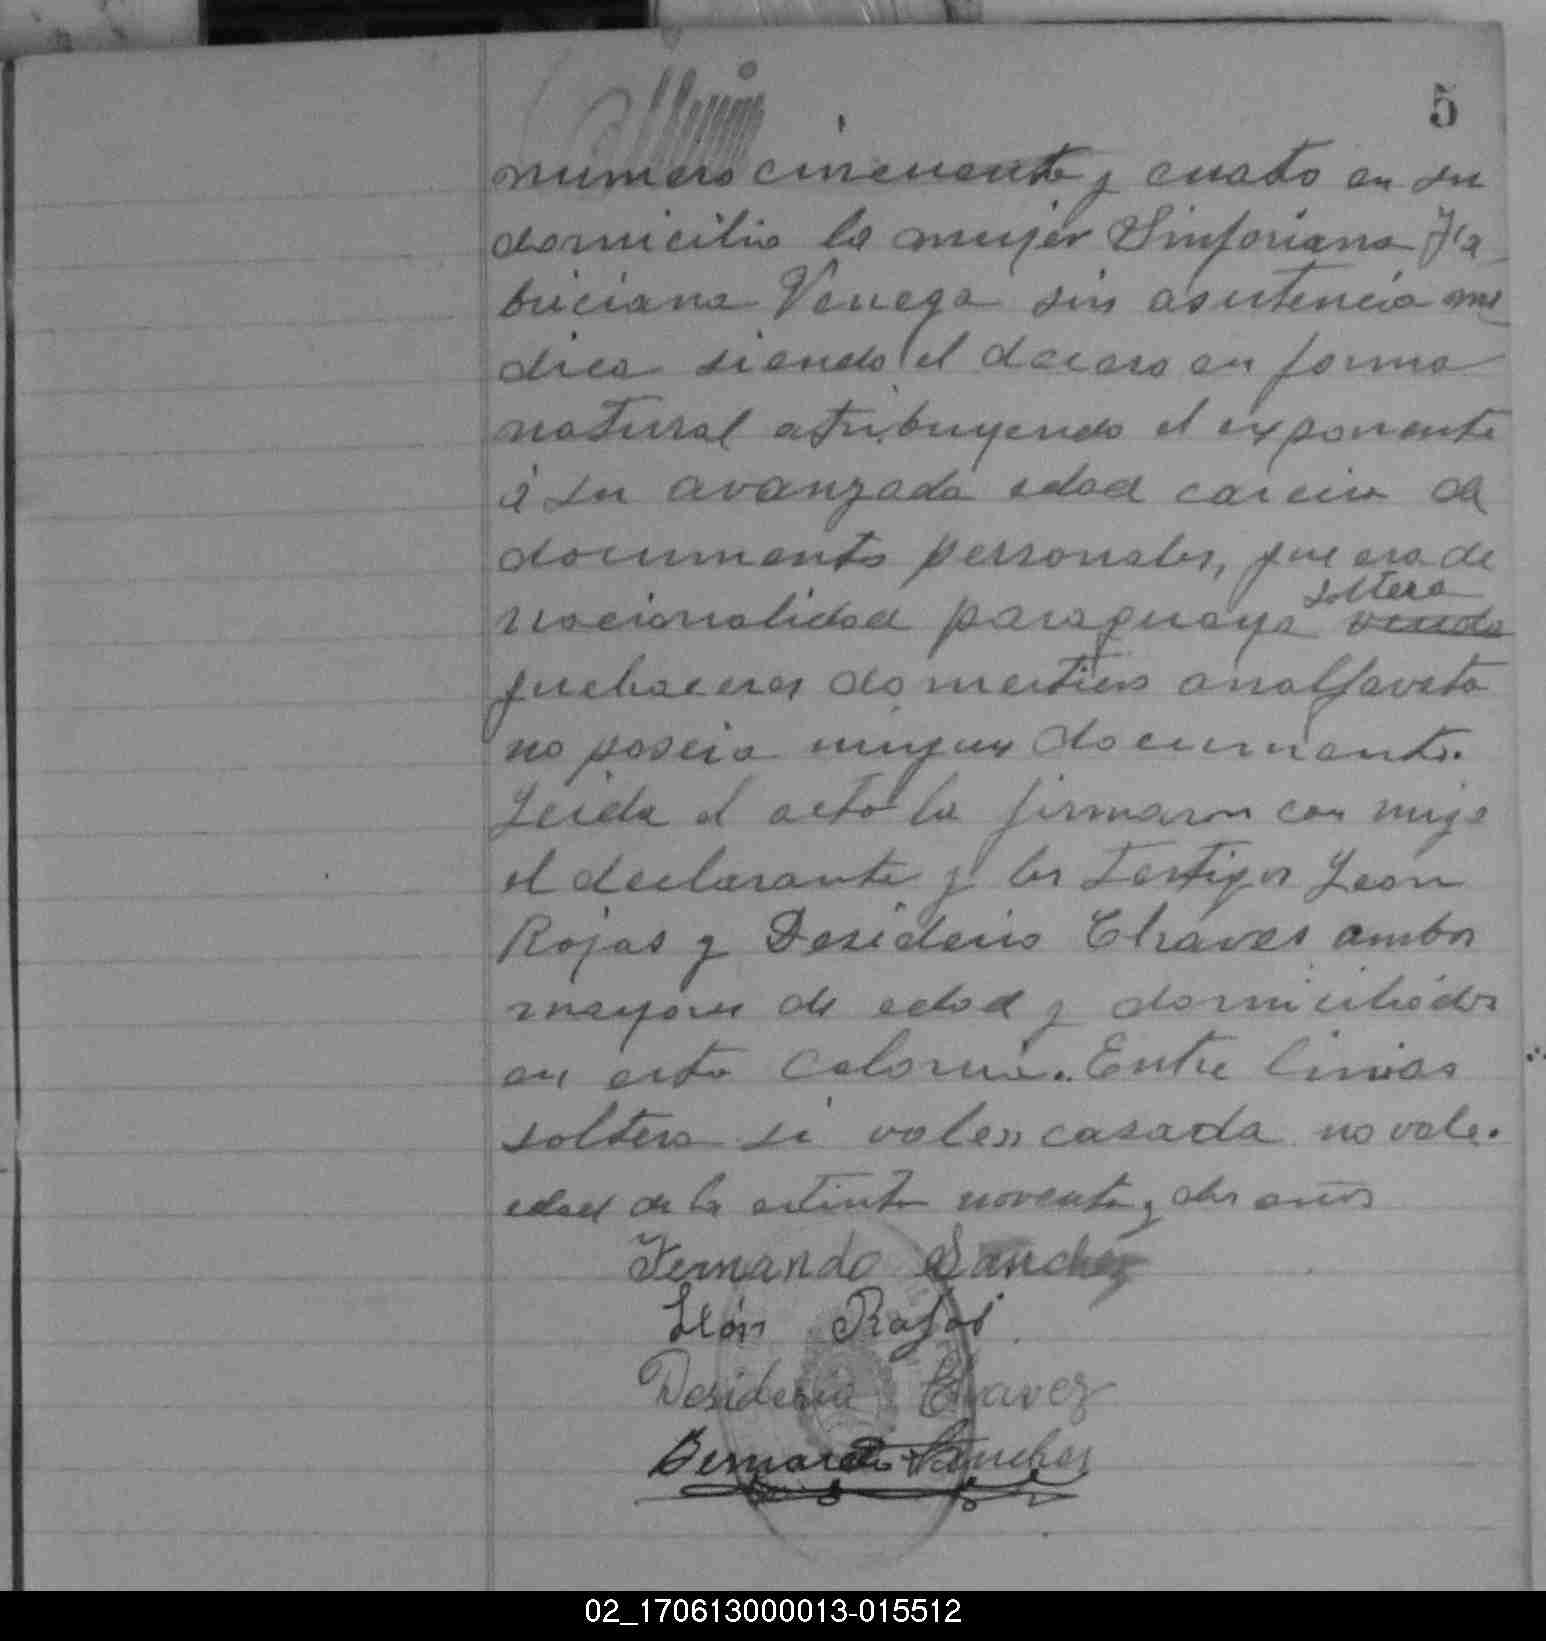 5
numero cincuenta y cuato en su
domicilio la mujer Sinforiana Fa
briciana Venega sin asistencia me
dica siendo el deceso en forma
natural atribuyendo el exponente
á su avanzada edad carecia de
documento personales, que era de
soltera
nacionalidad paraguaya viuda
quehaceres domestico analfaveta
no poseia ningun documento.
Leida el acto la firmaron con migo
el declarante y los testigos Leon
Rojas y Desiderio Chaves ambos
mayores de edad y domiciliados
en esta Colonia. Entre linias
soltera si vale» casada no vale.
edad de la extinta noventa y dos años
Fernando Sanchez
León Rojas
Desiderio Chavez
Bernardo Sanchez
02_170613000013-015512